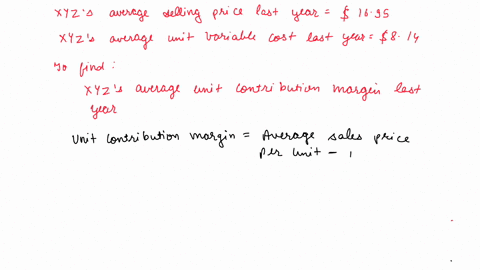 XYZ's average selling price last year = $ 16.95
XYZ's average unit variable cost last year = $8.14
To find :
XYZ's average unit contribution margin last
year
Unit contribution margin = Average sales price
per unit -